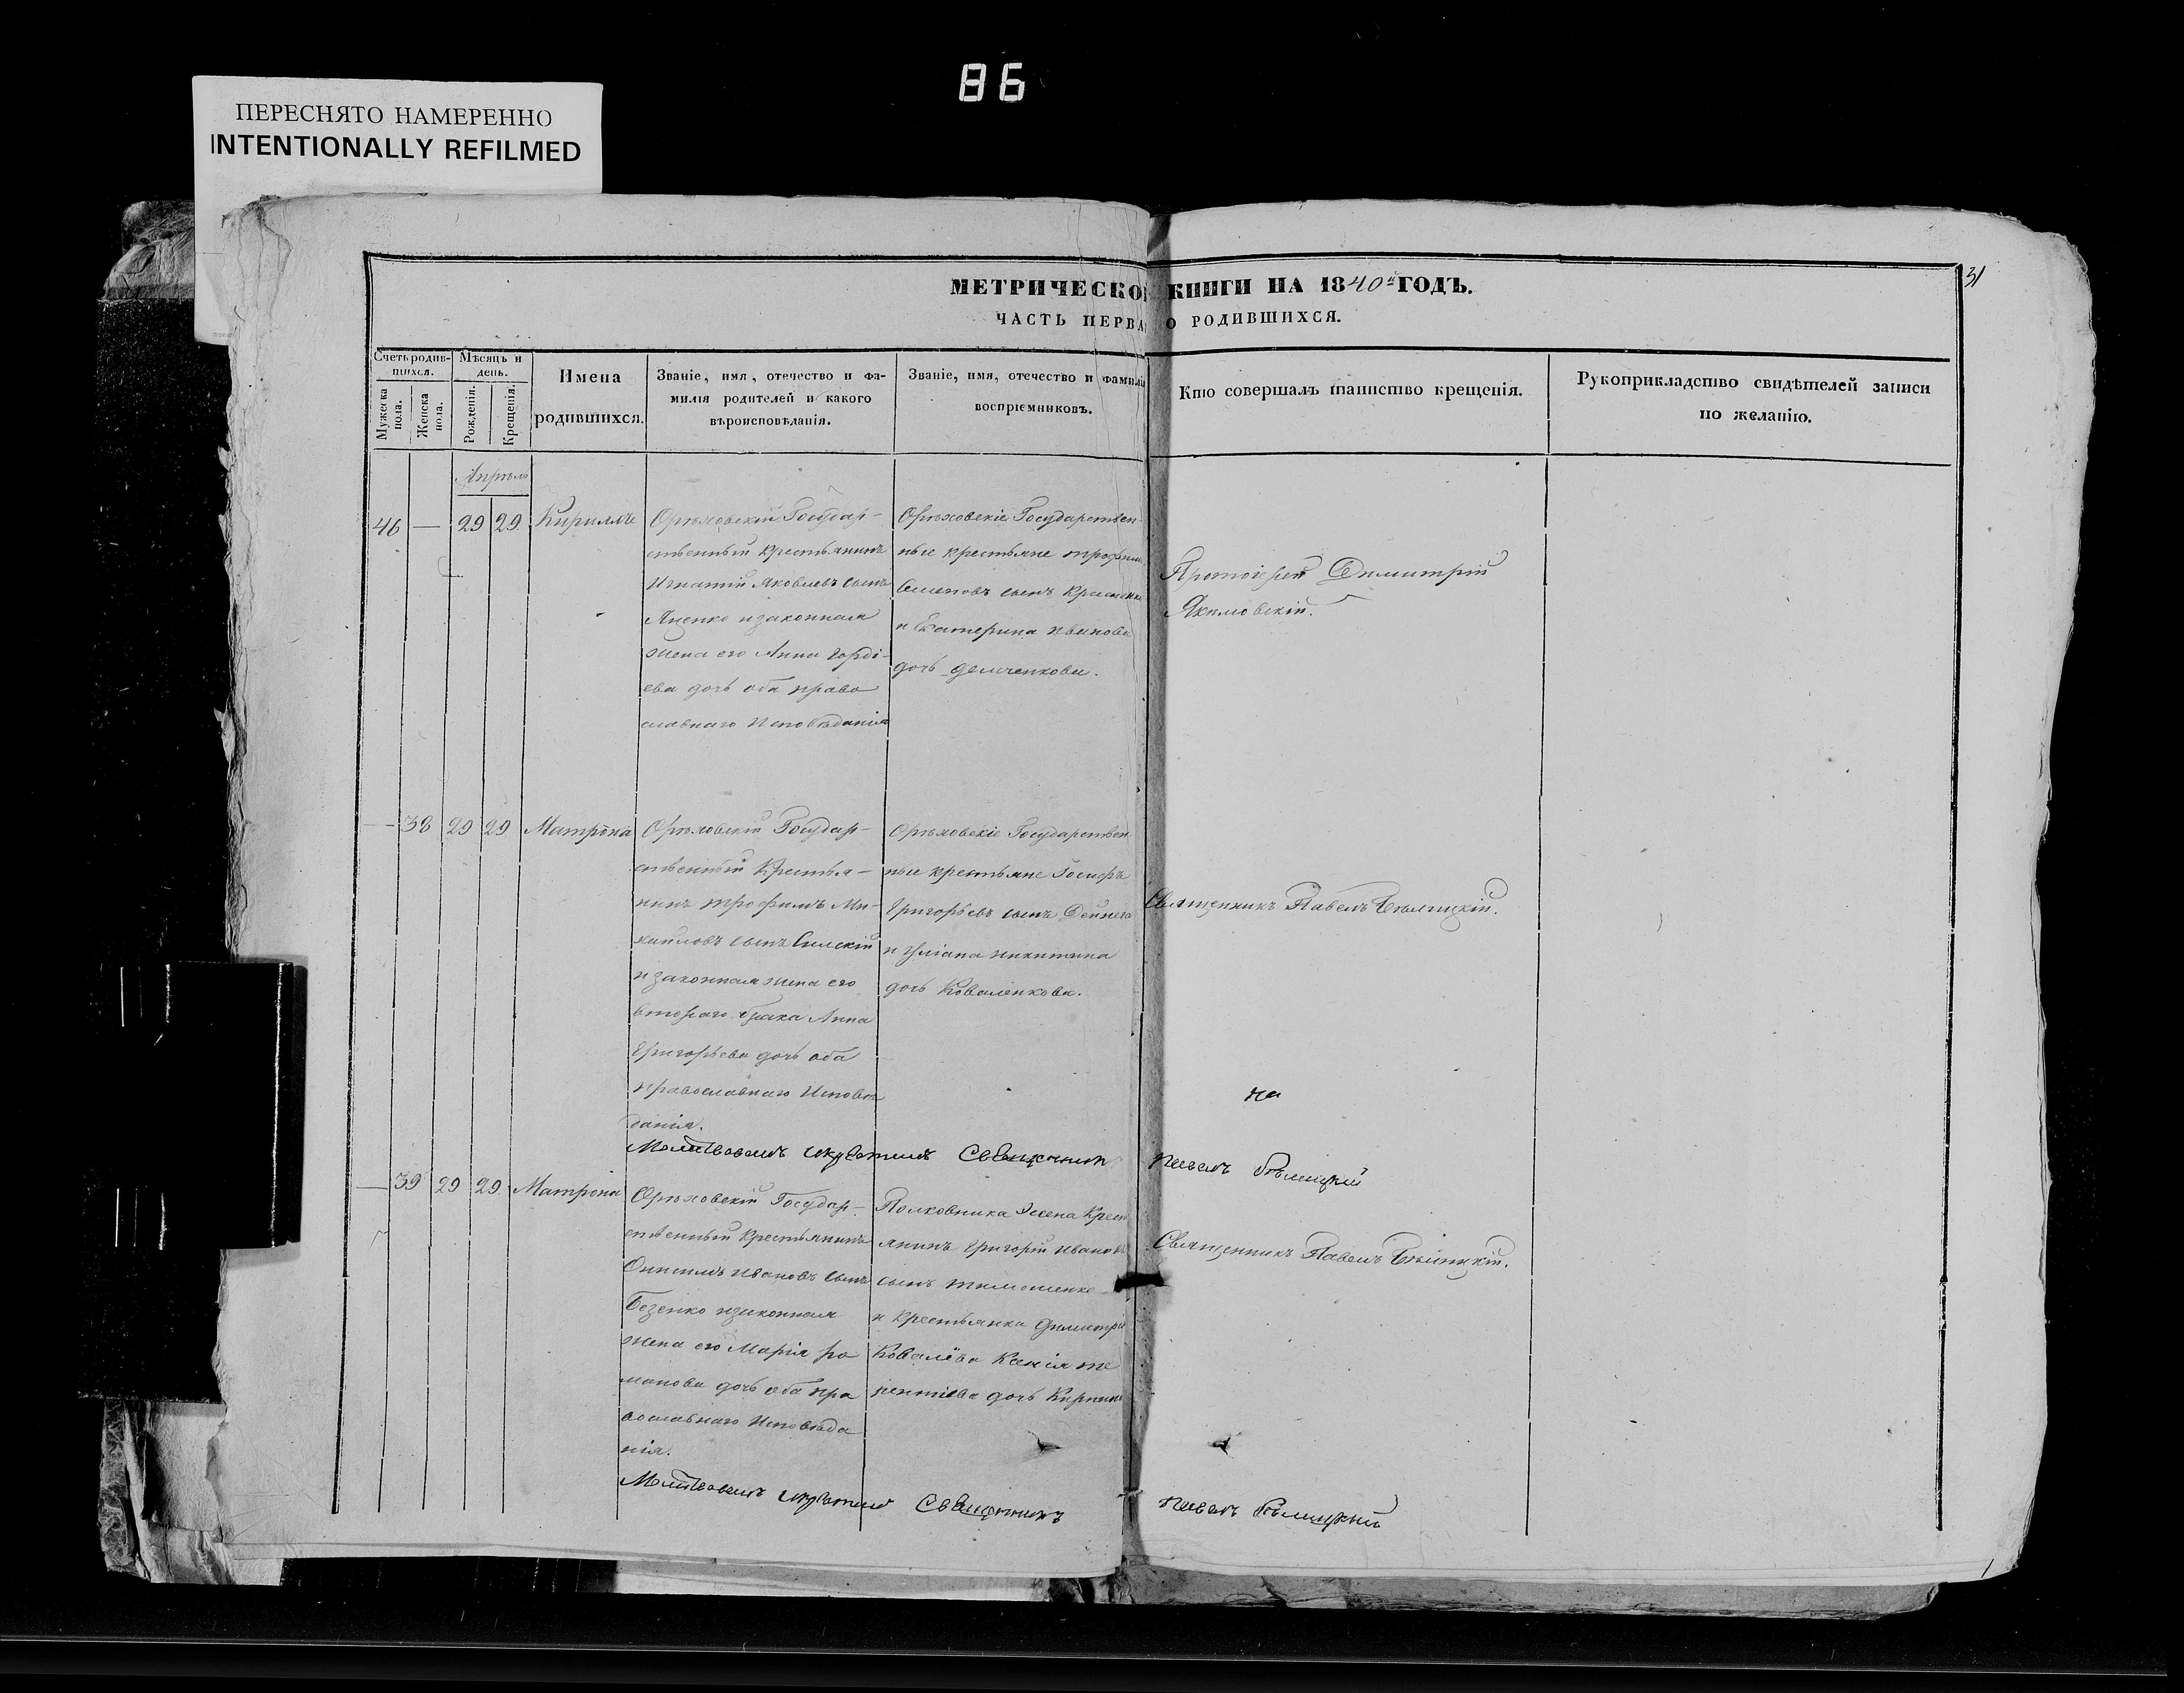 86
ПЕРЕСНЯТО НАМЕРЕННО
INTENTIONALLY REFILMED
31
МЕТРИЧЕСКОЙ КНИГИ НА 1840й ГОДЪ.
ЧАСТЬ ПЕРВАЯ О РОДИВШИХСЯ.
Счетъ родив-
шихся.
Мужеска
пола.
Женска
пола.
Мѣсяцъ и
день.
Рожденія.
Крещенія.
Имена
родившихся.
Званіе, имя, отечество и фа-
милія родителей и какого
вѣроисповѣданія.
Званіе, имя, отечество и фамилія
воспріемниковъ.
Кто совершалъ таинство крещенія.
Рукоприкладство свидѣтелей записи
по желанію.
Апрѣль
46 — 29 29 Кириллъ
Орѣховскій Государ-
ственный крестьянинъ
Игнатій Яковлевъ сынъ
Яценко и законная
жена его Анна Горді-
ева дочь оба право
славнаго Исповѣданія
Орѣховскіе Государствен-
ные крестьяне Трофимъ
Семеновъ сынъ
и Екатерина Иванова
дочь Демченкова.
Протоіерей Димитрій
Якимовскій.
— 38 29 29 Матрона
Орѣховскій Государ-
ственный Крестья-
нинъ Трофимъ Ми-
хайловъ сынъ Симскій
и законная жена его
втораго брака Анна
Григорьева дочь оба
православнаго Исповѣ
данія.
Орѣховскіе Государствен
ные крестьяне Іосифъ
Григорьевъ сынъ Дейнега
и Уліана Никитина
дочь Коваленкова.
Священникъ Павелъ Бѣлицкій.
на
Молитвовалъ и крестилъ Священникъ Павелъ Бѣлицкій
— 39 29 29 Матрона
Орѣховскій Государ-
ственный Крестьянинъ
Онисимъ Ивановъ сынъ
Безенко и законная
жена его Марія Ро
манова дочь оба пра
вославнаго Исповѣда
нія.
Полковника Крест
янинъ Григорій Ивановъ
сынъ Тимошенко
и Крестьянка Димитрія
Ковалёва Ксенія Те
рентіева дочь
Священникъ Павелъ Бѣлицкій.
Молитвовалъ и крестилъ Священникъ Павелъ Бѣлицкій